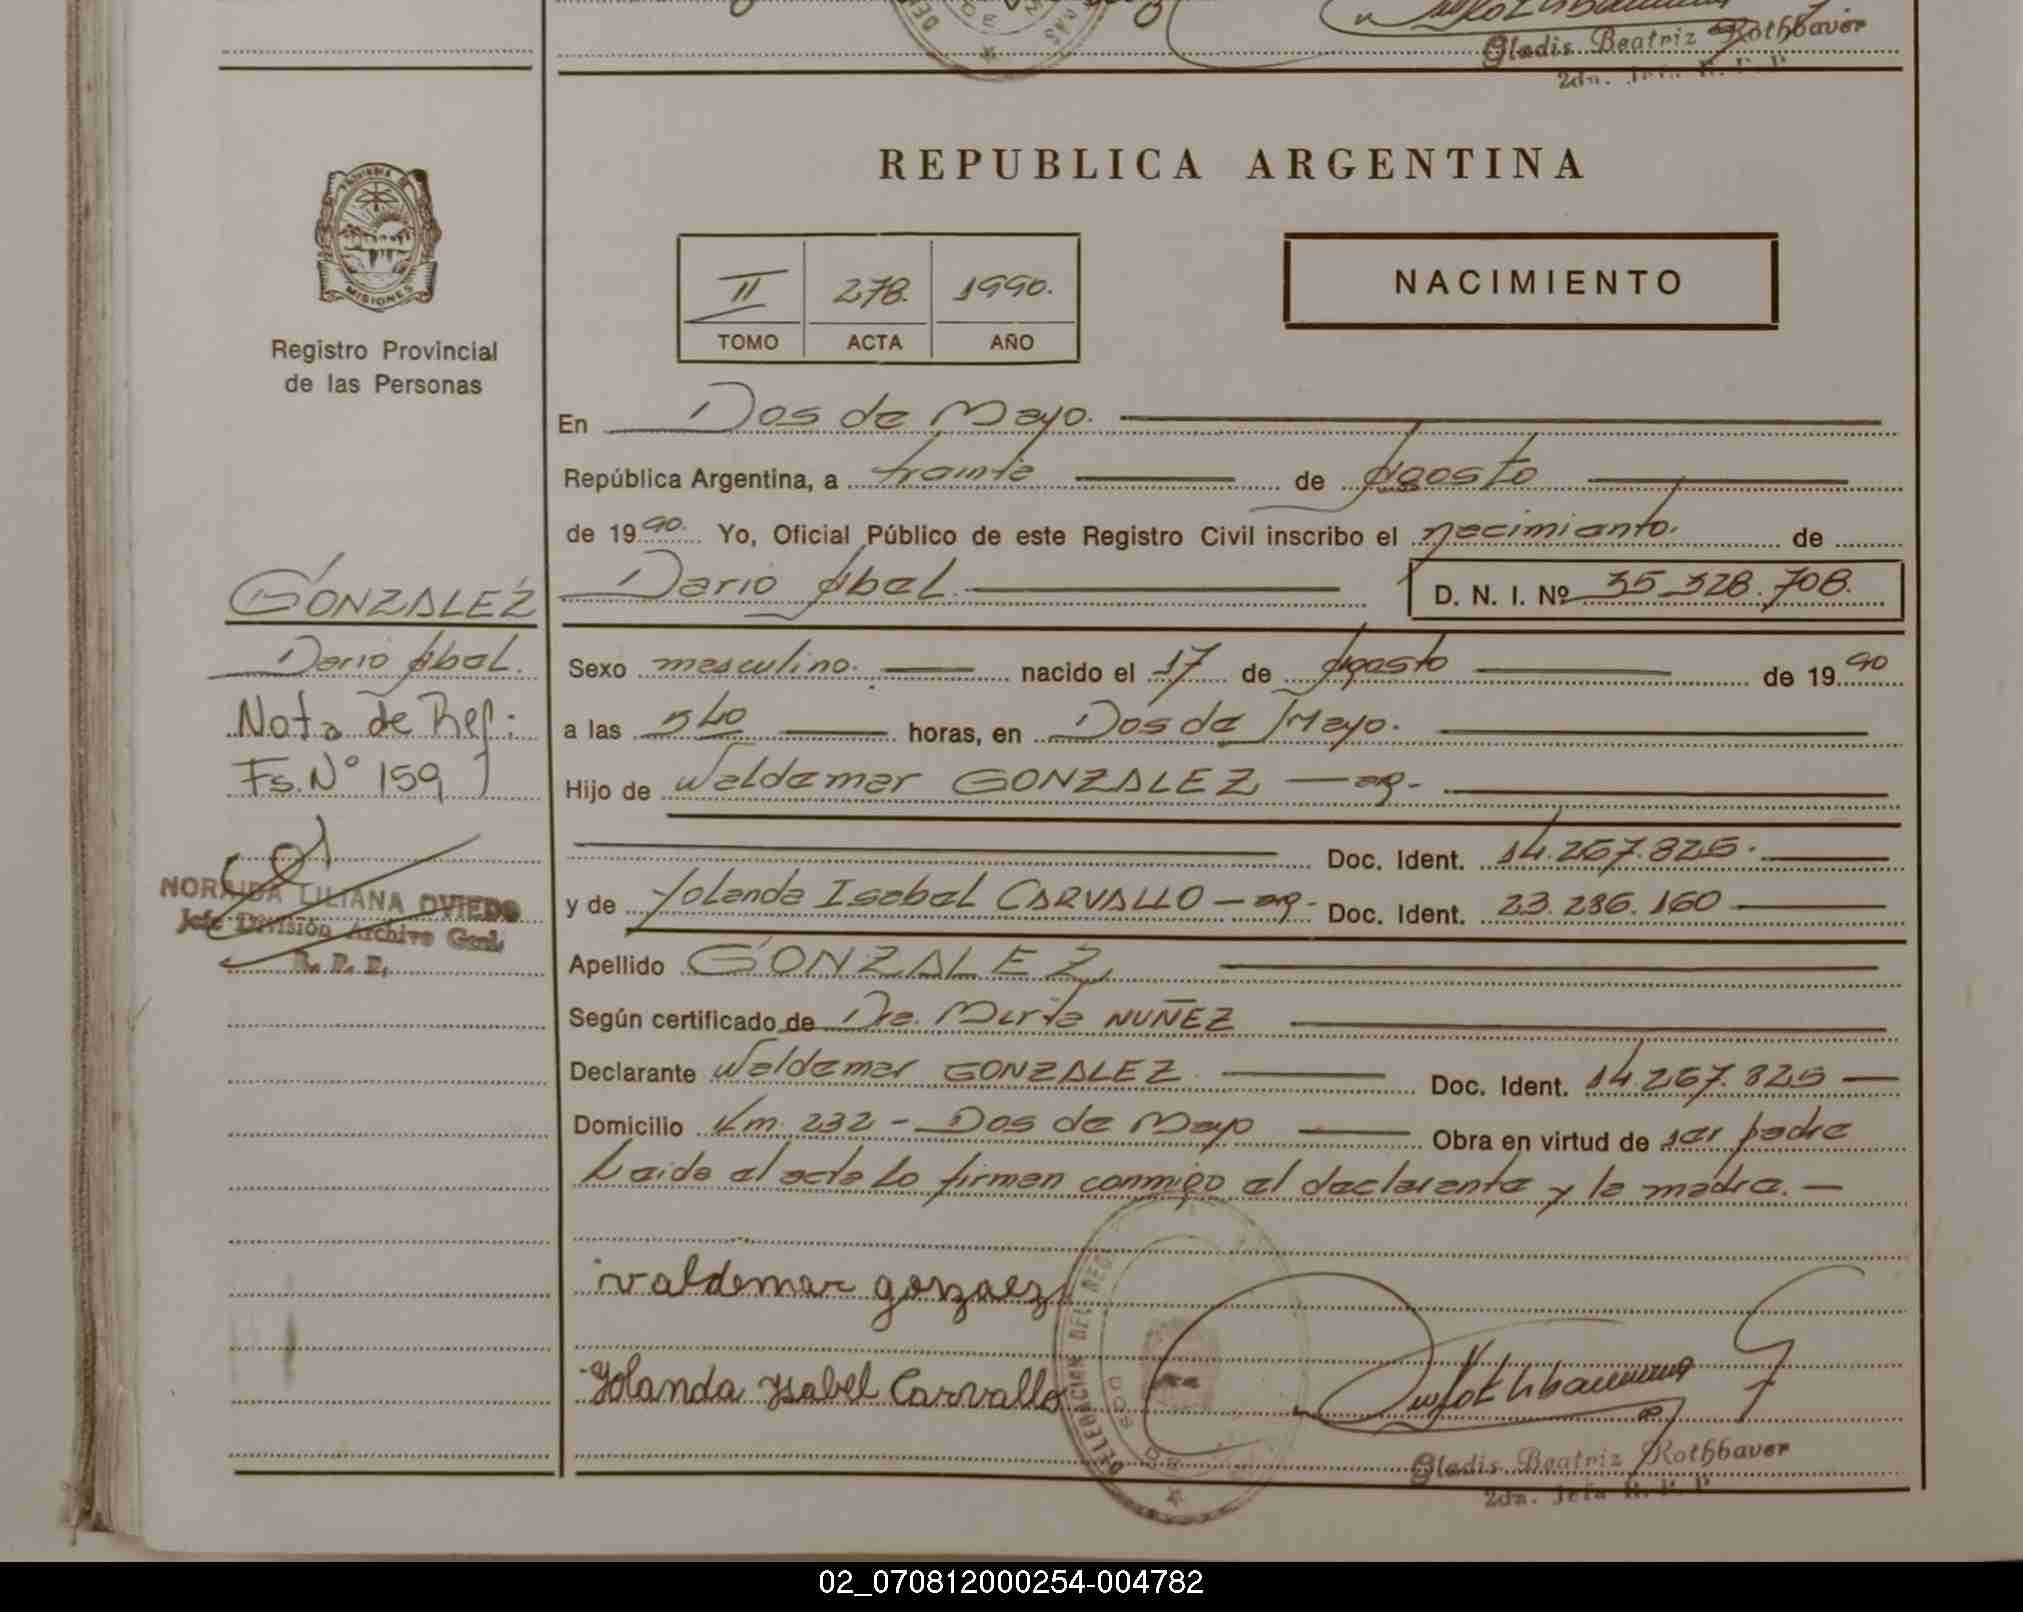 Gladis Beatriz Rothbaver
2da. Jefa R. P. P.
REPUBLICA ARGENTINA
PROVINCIA DE
MISIONES
Registro Provincial
de las Personas
II 278. 1990.
TOMO ACTA AÑO
NACIMIENTO
En Dos de Mayo.
República Argentina, a treinta de Agosto
de 1990. Yo, Oficial Público de este Registro Civil inscribo el nacimiento. de
GONZALEZ
Dario Abel.
D. N. I. Nº 35.328.708.
Dario Abel.
Sexo masculino. nacido el 17 de Agosto de 1990
Nota de Ref:
a las 5 40 horas, en Dos de Mayo.
Fs. N° 159
Hijo de Waldemar GONZALEZ — ar.-
Doc. Ident. 14.267.825.
NORAIDA LILIANA OVIEDO
Jefe División Archivo Gral.
R. P. P.
y de Yolanda Isabel CARVALLO — ar.- Doc. Ident. 23.286.160
Apellido GONZALEZ
Según certificado de Dra. Mirta NUÑEZ
Declarante Waldemar GONZALEZ Doc. Ident. 14.267.825
Domicilio Km. 232 - Dos de Mayo Obra en virtud de ser padre
Leida el acta lo firman conmigo el declarante y la madre. —
valdemar gonzaez
Yolanda Ysabel Carvallo
DELEGACION DEL REG
DOS DE
Gladis Beatriz Rothbaver
2da. Jefa R. P. P.
02_070812000254-004782